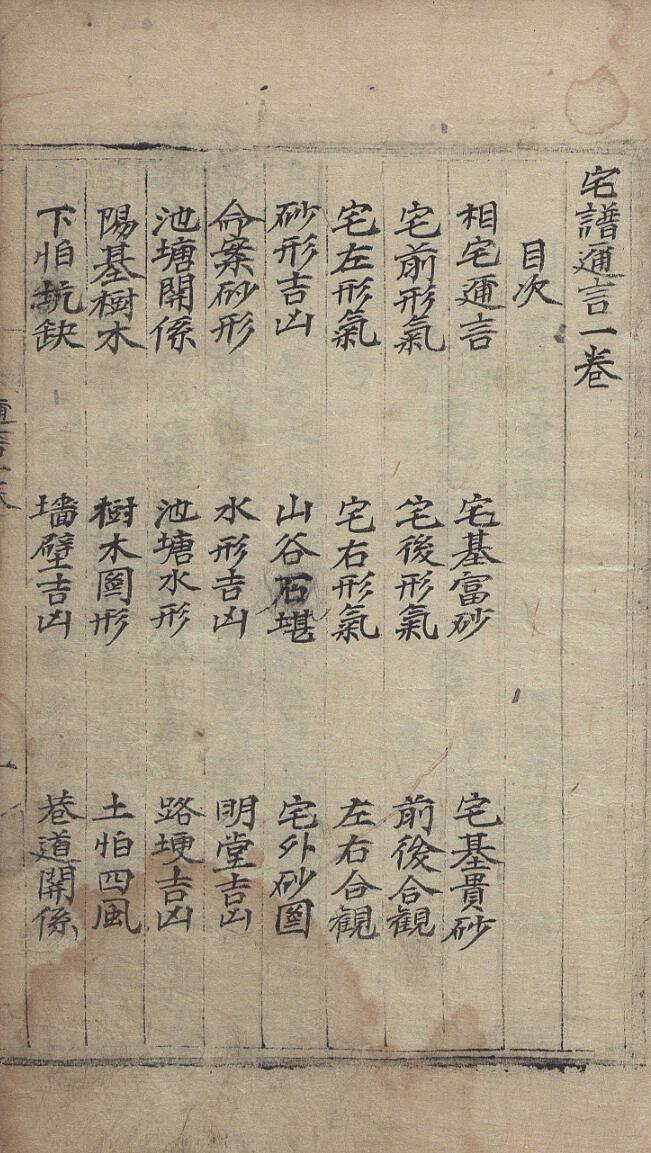 宅譜邇言一卷
目次
相宅邇言 宅基富砂 宅基貴砂
宅前形氣 宅後形氣 前後合觀
宅左形氣 宅右形氣 左右合觀
砂形吉凶 山谷石堪 宅外砂圖
命案砂形 水形吉凶 明堂吉凶
池塘関係 池塘水形 路埂吉凶
陽基樹木 樹木圖形 土怕四風
下怕坑缺 墻壁吉凶 巷道関係
邇言一卷